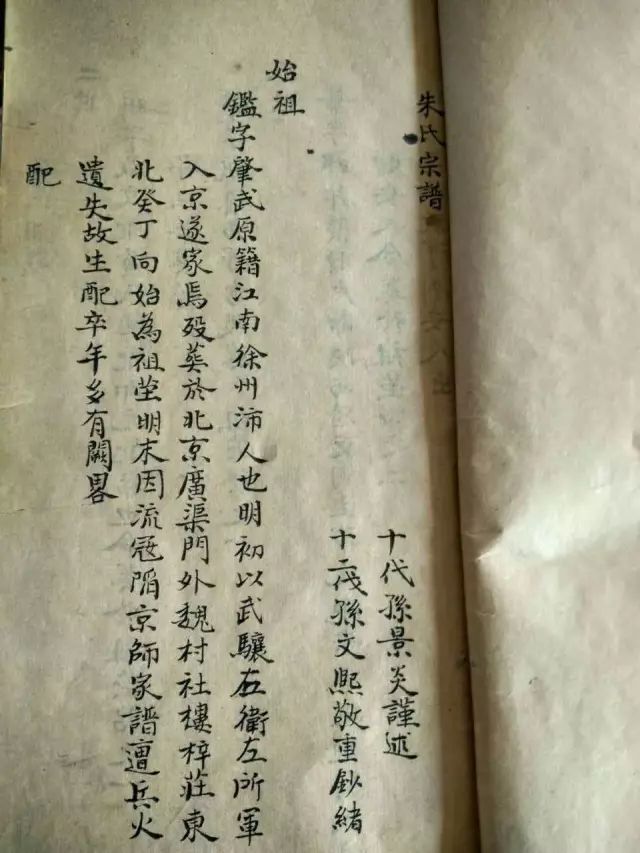 朱氏宗譜
十代孫景炎謹述
十二代孫文熙敬重鈔緒
始祖
鑑字肇武原籍江南徐州沛人也明初以武驤右衛左所軍
入京遂家焉歿葬於北京廣渠門外魏村社樓梓莊東
北癸丁向始為祖塋明末因流寇陷京師家譜遭兵火
遺失故生配卒年多有闕畧
配